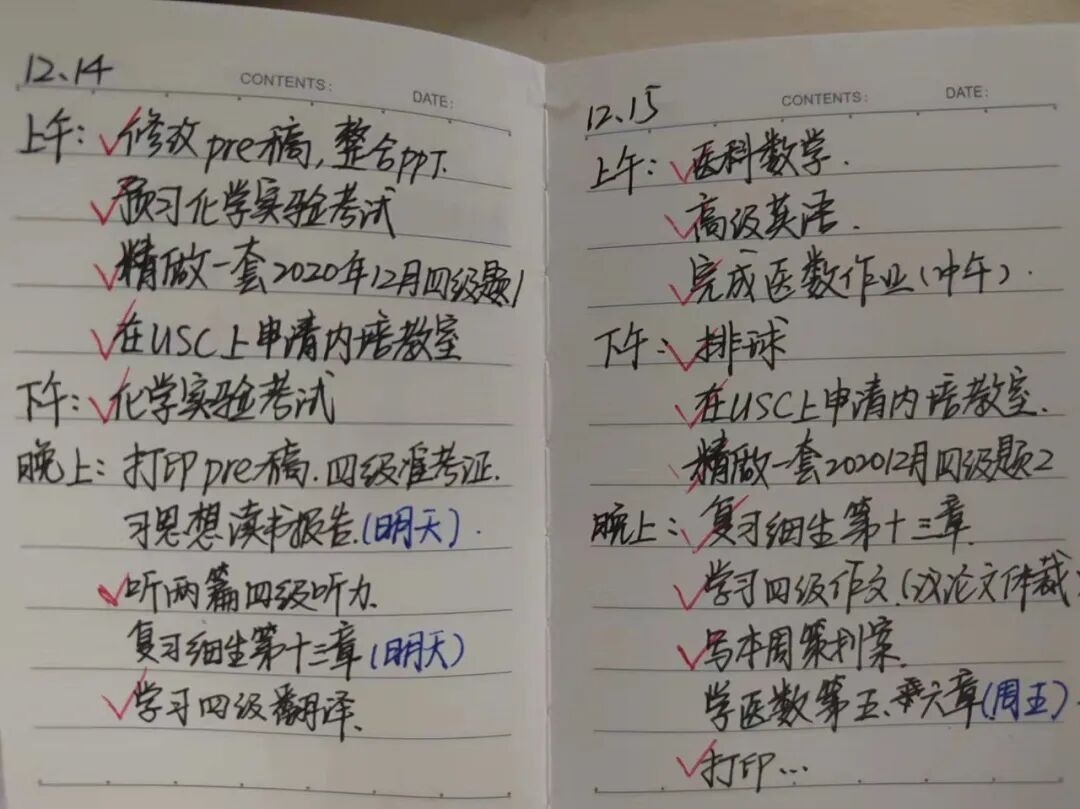 12.14
CONTENTS:
DATE:
上午: ✓修改pre稿,整合ppT.
✓预习化学实验考试
✓精做一套2020年12月四级题1
✓在USC上申请内培教室
下午: ✓化学实验考试
晚上: 打印pre稿.四级准考证.
习思想读书报告.(明天).
✓听两篇四级听力.
复习细生第十三章(明天)
✓学习四级翻译.
12.15
CONTENTS:
DATE:
上午: ✓医科数学.
✓高级英语.
✓完成医数作业(中午).
下午: ✓排球
✓在USC上申请内培教室.
✓精做一套202012月四级题2
晚上: ✓复习细生第十三章.
✓学习四级作文.(议论文体裁)
✓写本周策划案.
学医数第五.六章(周五).
✓打印...